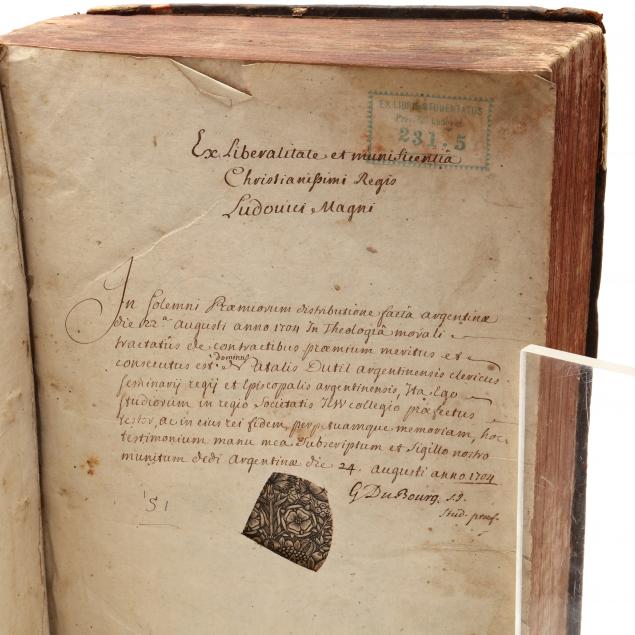 EX LIBRIS STUDENTATUS
231.5
Ex Liberalitate et munificentiâ
Christianissimi Regis
Ludovici Magni
In Solemni Præmiorum distributione facta argentinæ
die 22.a augusti anno 1704 In Theologiâ morali
tractatûs de contractibus præmium meritus et
consecutus est dominus Natalis Dutil argentinensis clericus
seminarij regij et Episcopalis argentinensis, Ita Ego
studiorum in regio Societatis collegio præfectus
testor, ac in eius rei fidem, perpetuamque memoriam, hoc
testimonium manu mea subscriptum et sigillo nostro
munitum dedi Argentinæ die 24. augusti anno 1704
G DuBourg. SJ.
stud. præf.
151